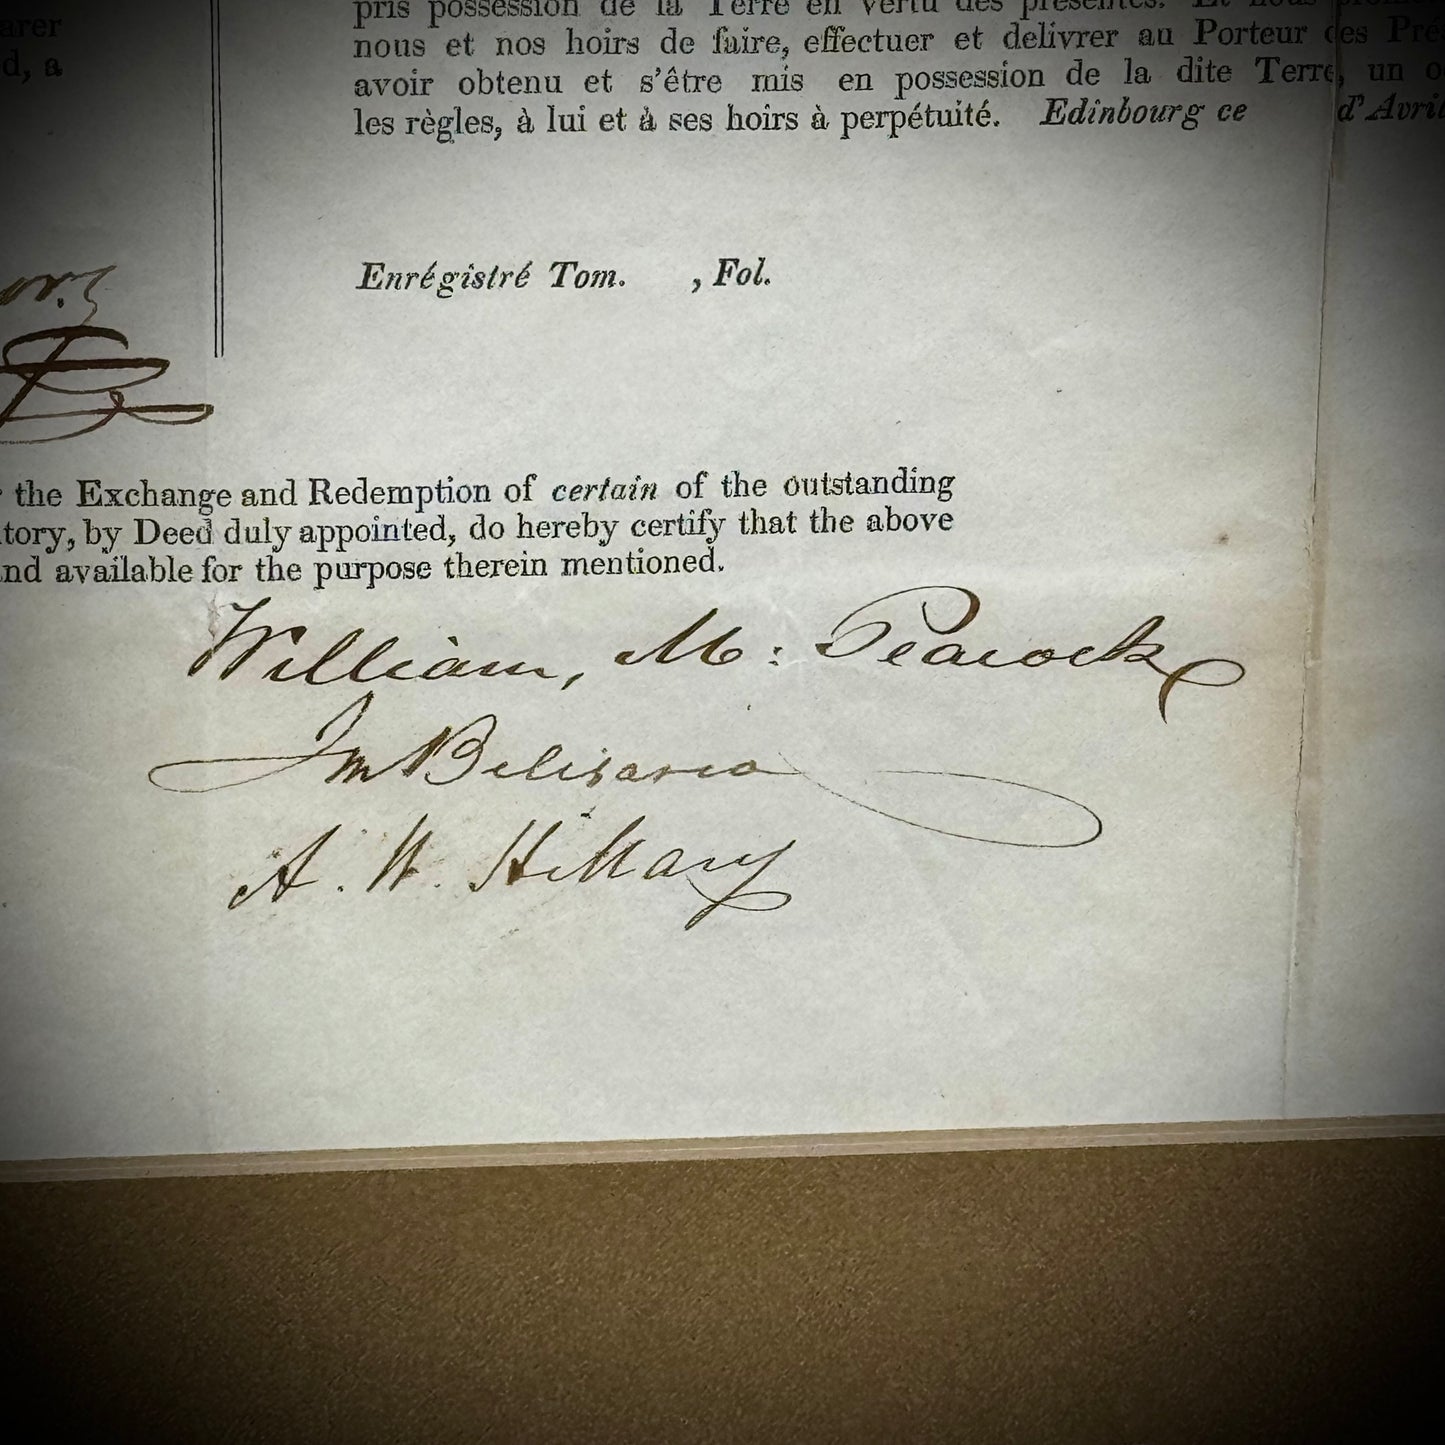 arer
d, a
pris possession de la Terre en vertu des présentes. Et nous
nous et nos hoirs de faire, effectuer et delivrer au Porteur des Pré
avoir obtenu et s'être mis en possession de la dite Terre, un o
les règles, à lui et à ses hoirs à perpétuité. Edinbourg ce d'Avril
Enrégistré Tom. , Fol.
the Exchange and Redemption of certain of the outstanding
tory, by Deed duly appointed, do hereby certify that the above
nd available for the purpose therein mentioned.
William, M: Peacock
Jm Belisario
A. W. Hillary